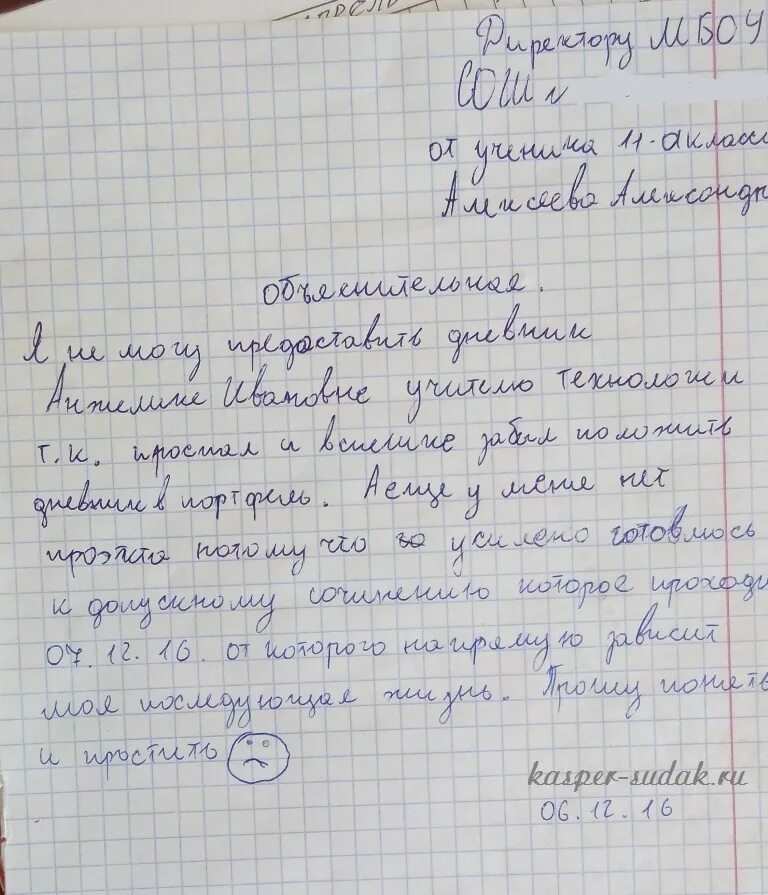 Директору МБОУ
СОШ №
от ученика 11-а класс
Алексеева Александр
Объяснительная.
Я не могу предоставить дневник
Анжелике Ивановне учителю технологии
т.к. проспал и вспешке забыл положить
дневник в портфель. А еще у меня нет
проэкта потому что усилено готовлюсь
к допускному сочинению которое проходи
07.12.16. от которого на прямую зависит
моя последующая жизнь. Прошу понять
и простить
kasper-sudak.ru
06.12.16